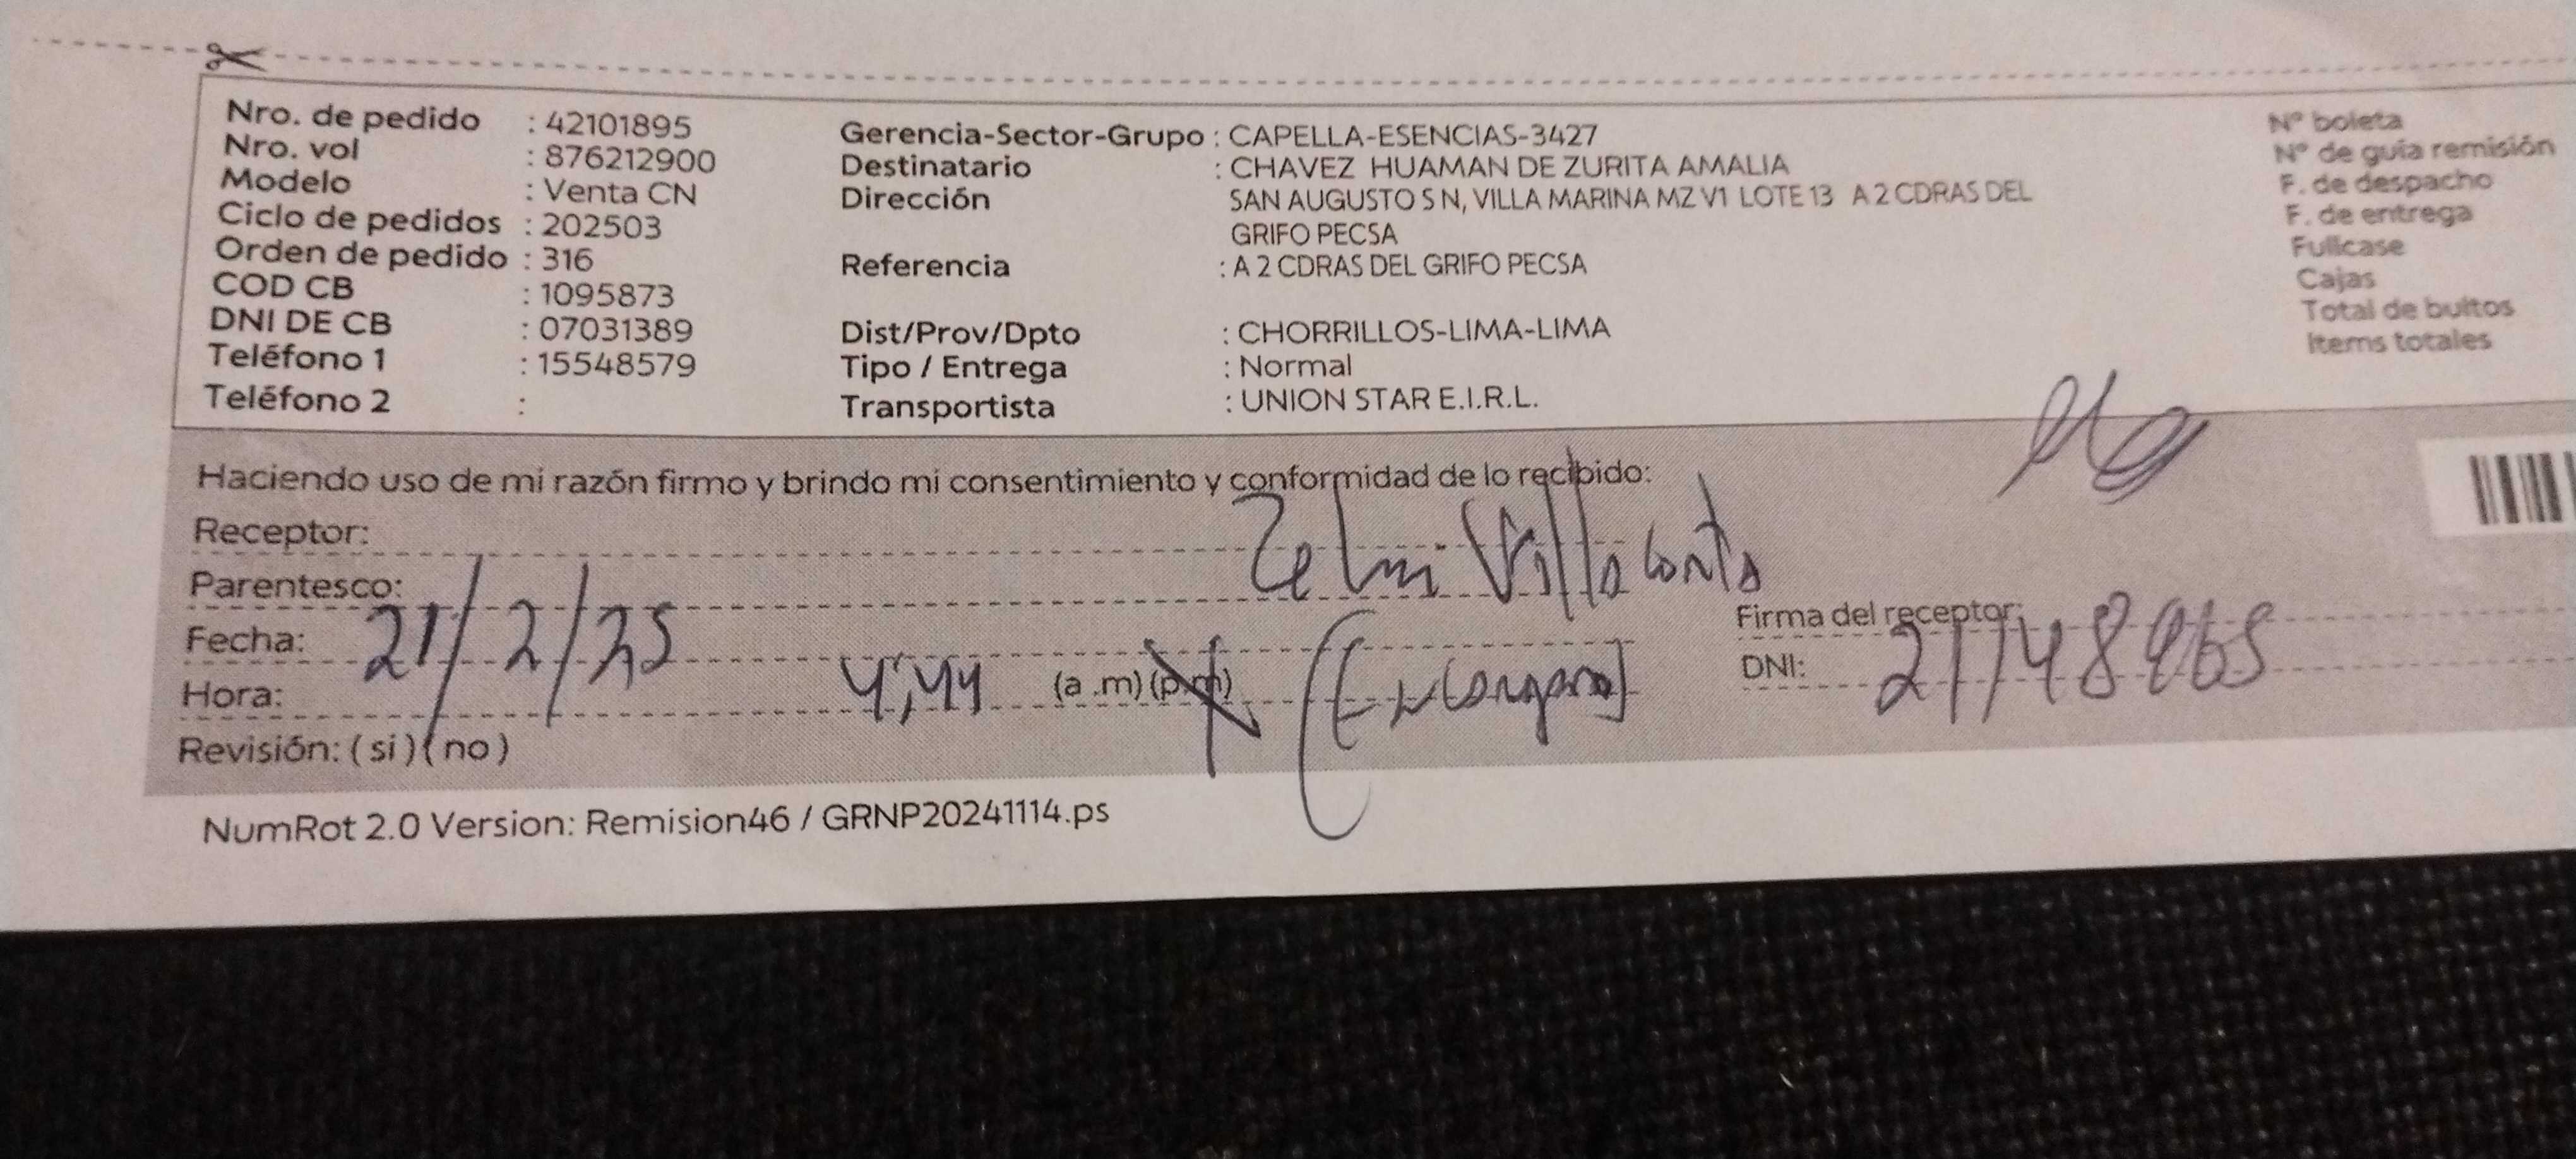 Nro. de pedido : 42101895
Nro. vol : 876212900
Modelo : Venta CN
Ciclo de pedidos : 202503
Orden de pedido : 316
COD CB : 1095873
DNI DE CB : 07031389
Teléfono 1 : 15548579
Teléfono 2 :
Gerencia-Sector-Grupo : CAPELLA-ESENCIAS-3427
Destinatario : CHAVEZ HUAMAN DE ZURITA AMALIA
Dirección SAN AUGUSTO S N, VILLA MARINA MZ V1 LOTE 13 A 2 CDRAS DEL
GRIFO PECSA
Referencia : A 2 CDRAS DEL GRIFO PECSA
Dist/Prov/Dpto : CHORRILLOS-LIMA-LIMA
Tipo / Entrega : Normal
Transportista : UNION STAR E.I.R.L.
Nº boleta
Nº de guía remisión
F. de despacho
F. de entrega
Fullcase
Cajas
Total de bultos
Items totales
Haciendo uso de mi razón firmo y brindo mi consentimiento y conformidad de lo recibido:
Receptor:
Parentesco:
Fecha: 21/2/25
Hora: 4:44 (a .m) (p.m)
Revisión: ( si ) ( no )
Firma del receptor:
DNI:
NumRot 2.0 Version: Remision46 / GRNP20241114.ps